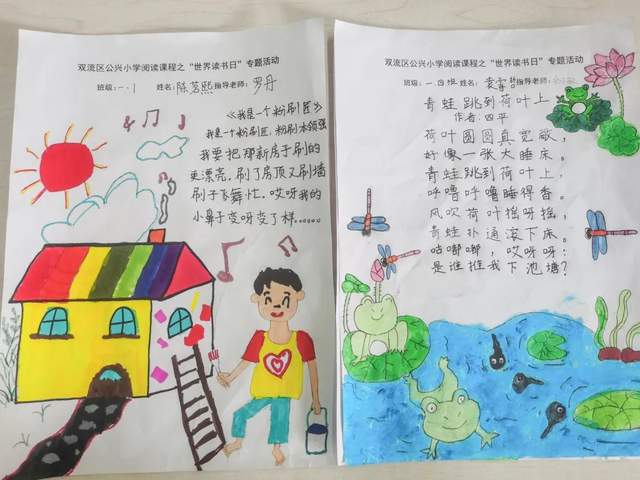 双流区公兴小学阅读课程之“世界读书日”专题活动
班级:一.1 姓名:陈茗熙 指导老师:罗丹
《我是个粉刷匠》
我是个粉刷匠,粉刷本领强
我要把那新房子刷的
更漂亮,刷了房顶又刷墙
刷子飞舞忙,哎呀我的
小鼻子变呀变了样……
双流区公兴小学阅读课程之“世界读书日”专题活动
班级:一.四班 姓名:袁雪 指导老师:
青蛙跳到荷叶上
作者:四平
荷叶圆圆真宽敞,
好像一张大睡床。
青蛙跳到荷叶上,
呼噜呼噜睡得香。
风吹荷叶摇呀摇,
青蛙扑通滚下床。
咕嘟嘟,哎呀呀:
是谁推我下池塘?